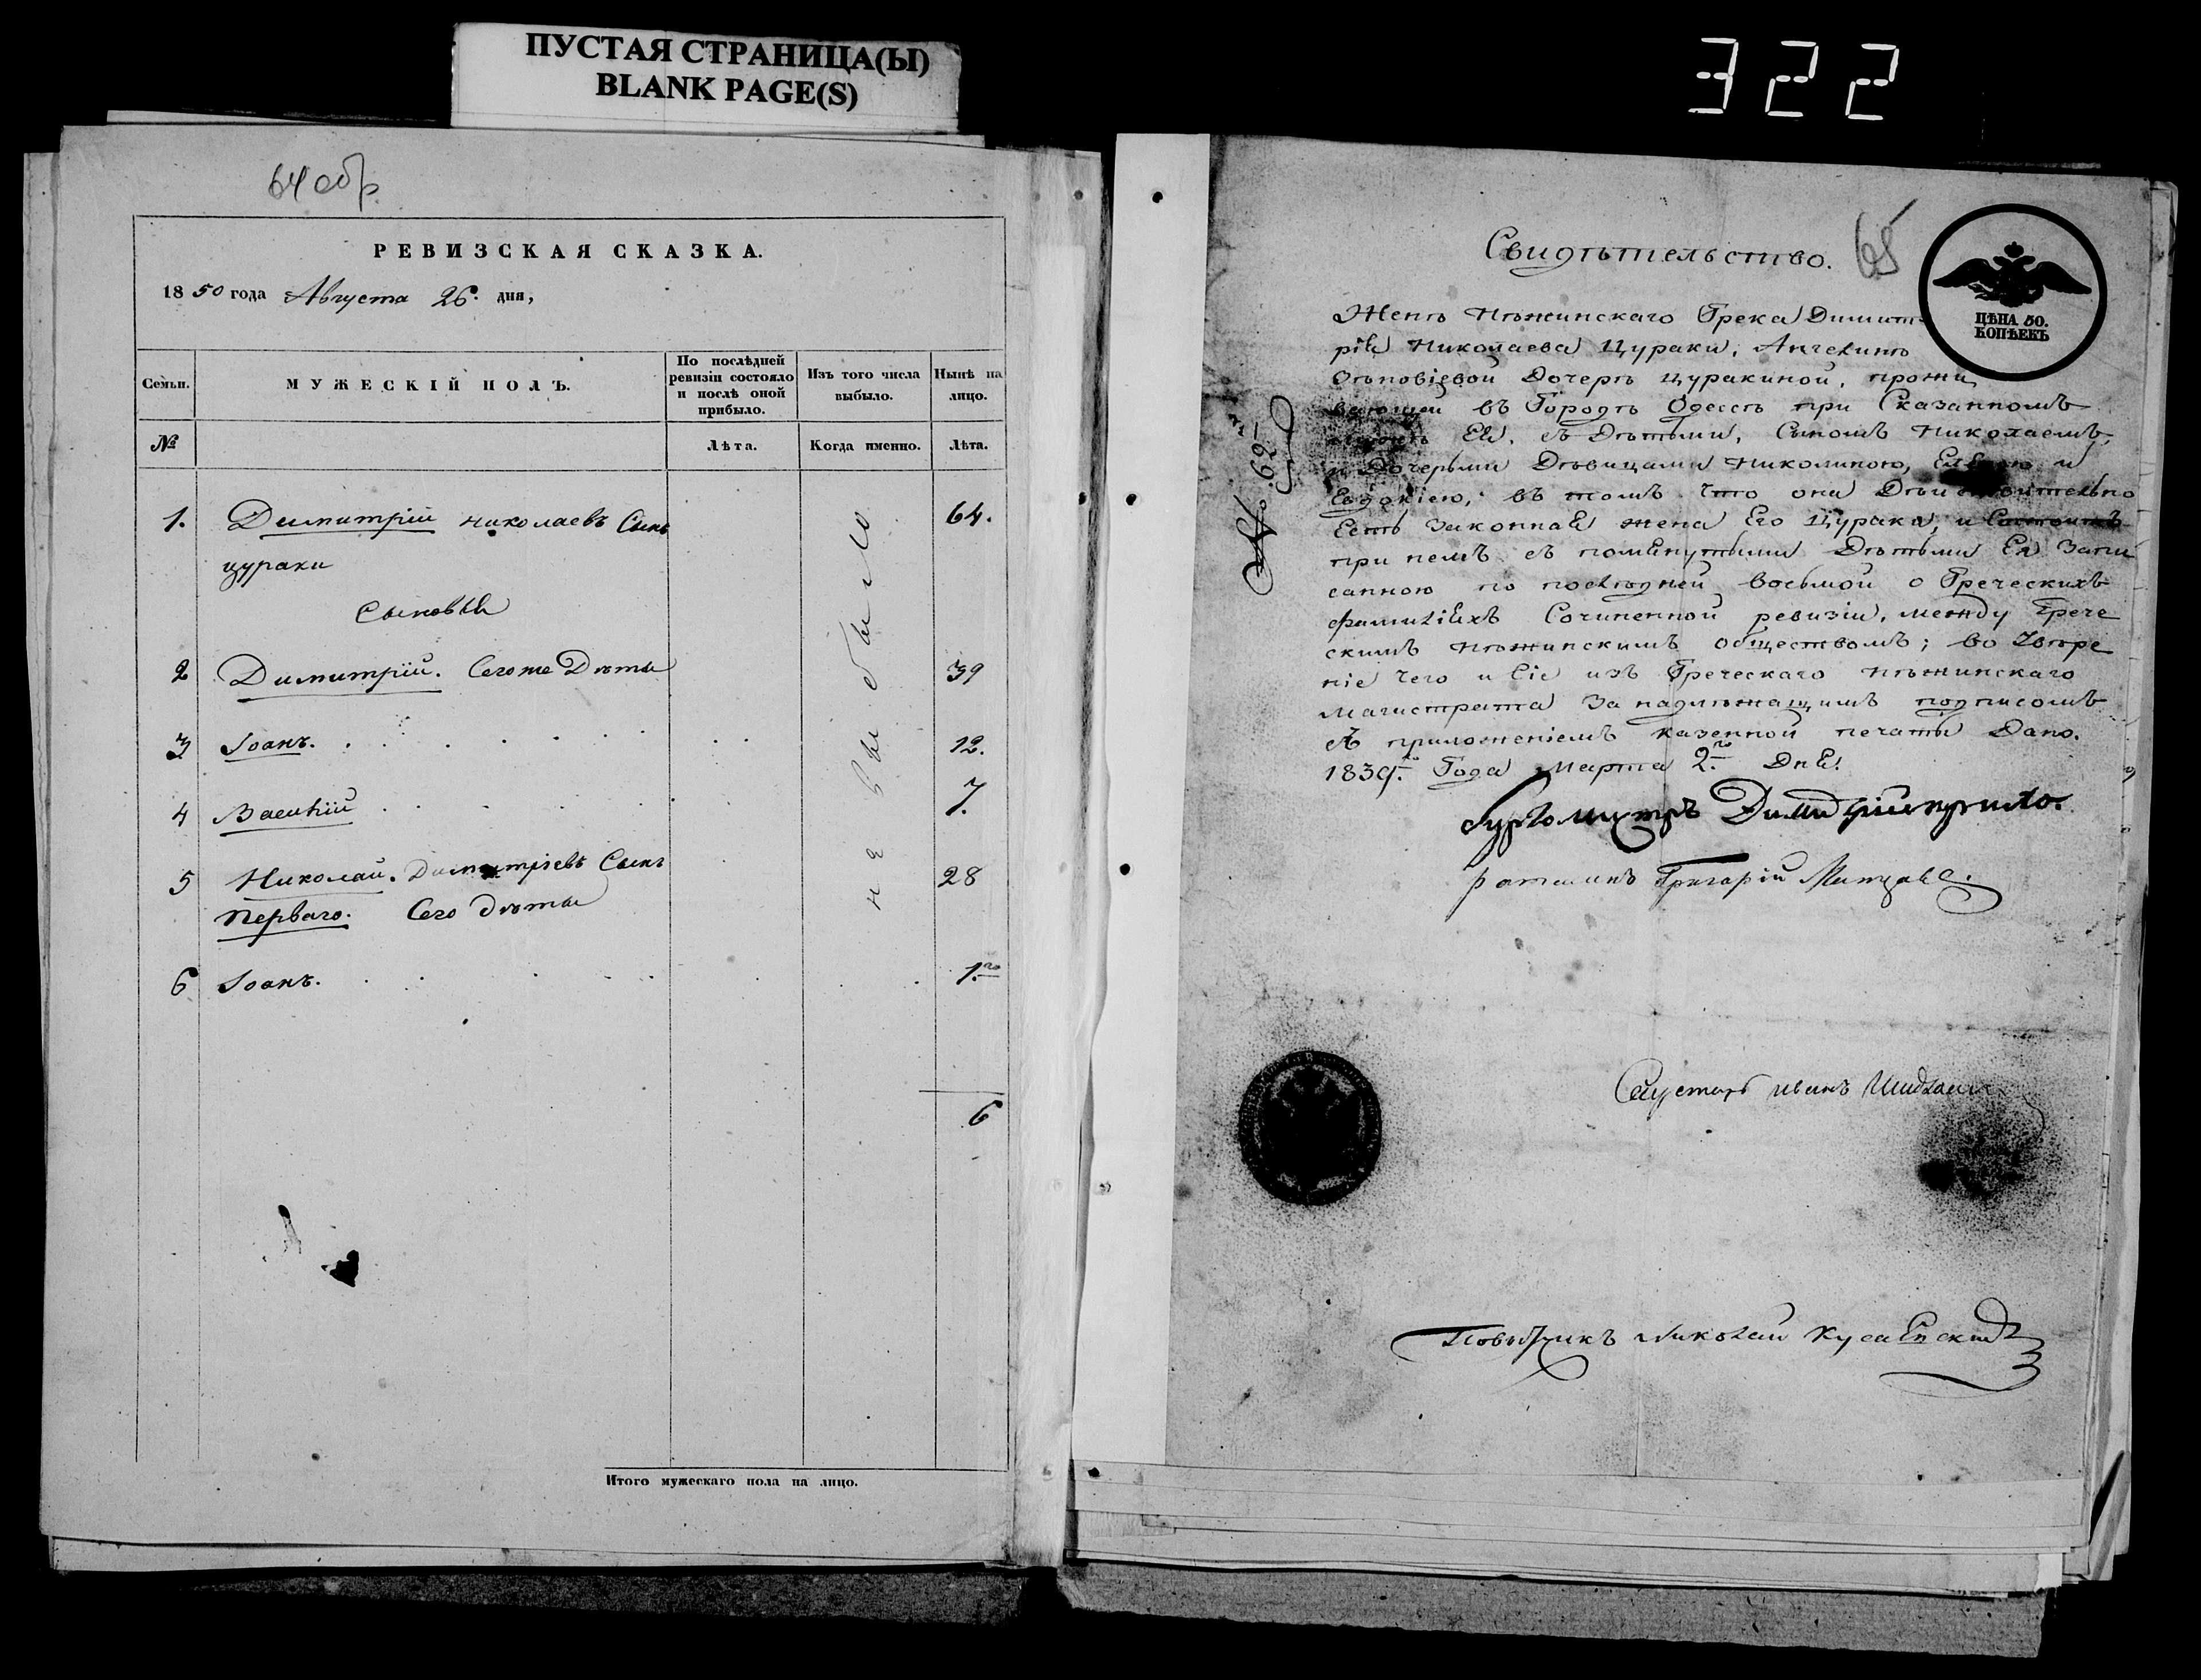 ПУСТАЯ СТРАНИЦА(Ы)
BLANK PAGE(S)
322
64 обр
РЕВИЗСКАЯ СКАЗКА.
1850 года Августа 26. дня,
Семьи.
МУЖЕСКІЙ ПОЛЪ.
По послѣдней ревизіи состояло и послѣ оной прибыло.
Изъ того числа выбыло.
Нынѣ на лицо.
№
Лѣта.
Когда именно.
Лѣта.
1. Димитрій Николаевъ Сынъ 64.
цураки
Сыновья
2 Димитрій. Сего же Дѣти 39
3 Іоанъ. 12.
4 Василій 7.
5 Николай. Димитріевъ Сынъ 28
Перваго. Сего дѣти
6 Іоанъ. 1.го
не выбыло
6
Итого мужескаго пола на лицо.
65
Свидѣтельство.
ЦѢНА 50.
КОПѢЕКЪ
№. 62
Женѣ Нѣжинскаго Грека Димит
рія Николаева Цураки, Ангелинѣ
Дочерѣ цуракиной, прожи
вающей въ Городѣ Одессѣ при Сказанномъ
Ея. съ Дѣтьми, Сыномъ Николаемъ,
и Дочерьми Дѣвицами Николиною, и
Евдокіею, въ томъ что она Дѣйствительно
Есть Законная жена Его Цураки, и Состоитъ
при немъ съ помянутыми Дѣтьми Ея Запи
санною по послѣдней восьмой о Греческихъ
фамиліяхъ Сочиненной ревизіи, между Грече
скимъ Нѣжинскимъ обществомъ; во Увѣре
ніе чего и Сіе изъ Греческаго Нѣжинскаго
Магистрата За надлѣжащимъ подписомъ
съ приложеніемъ казенной печати Дано.
1839.го Года Марта 2.го Дня.
Бургомистръ Димитрій
Ратманъ Григорій
Иванъ
Повытчикъ Николай